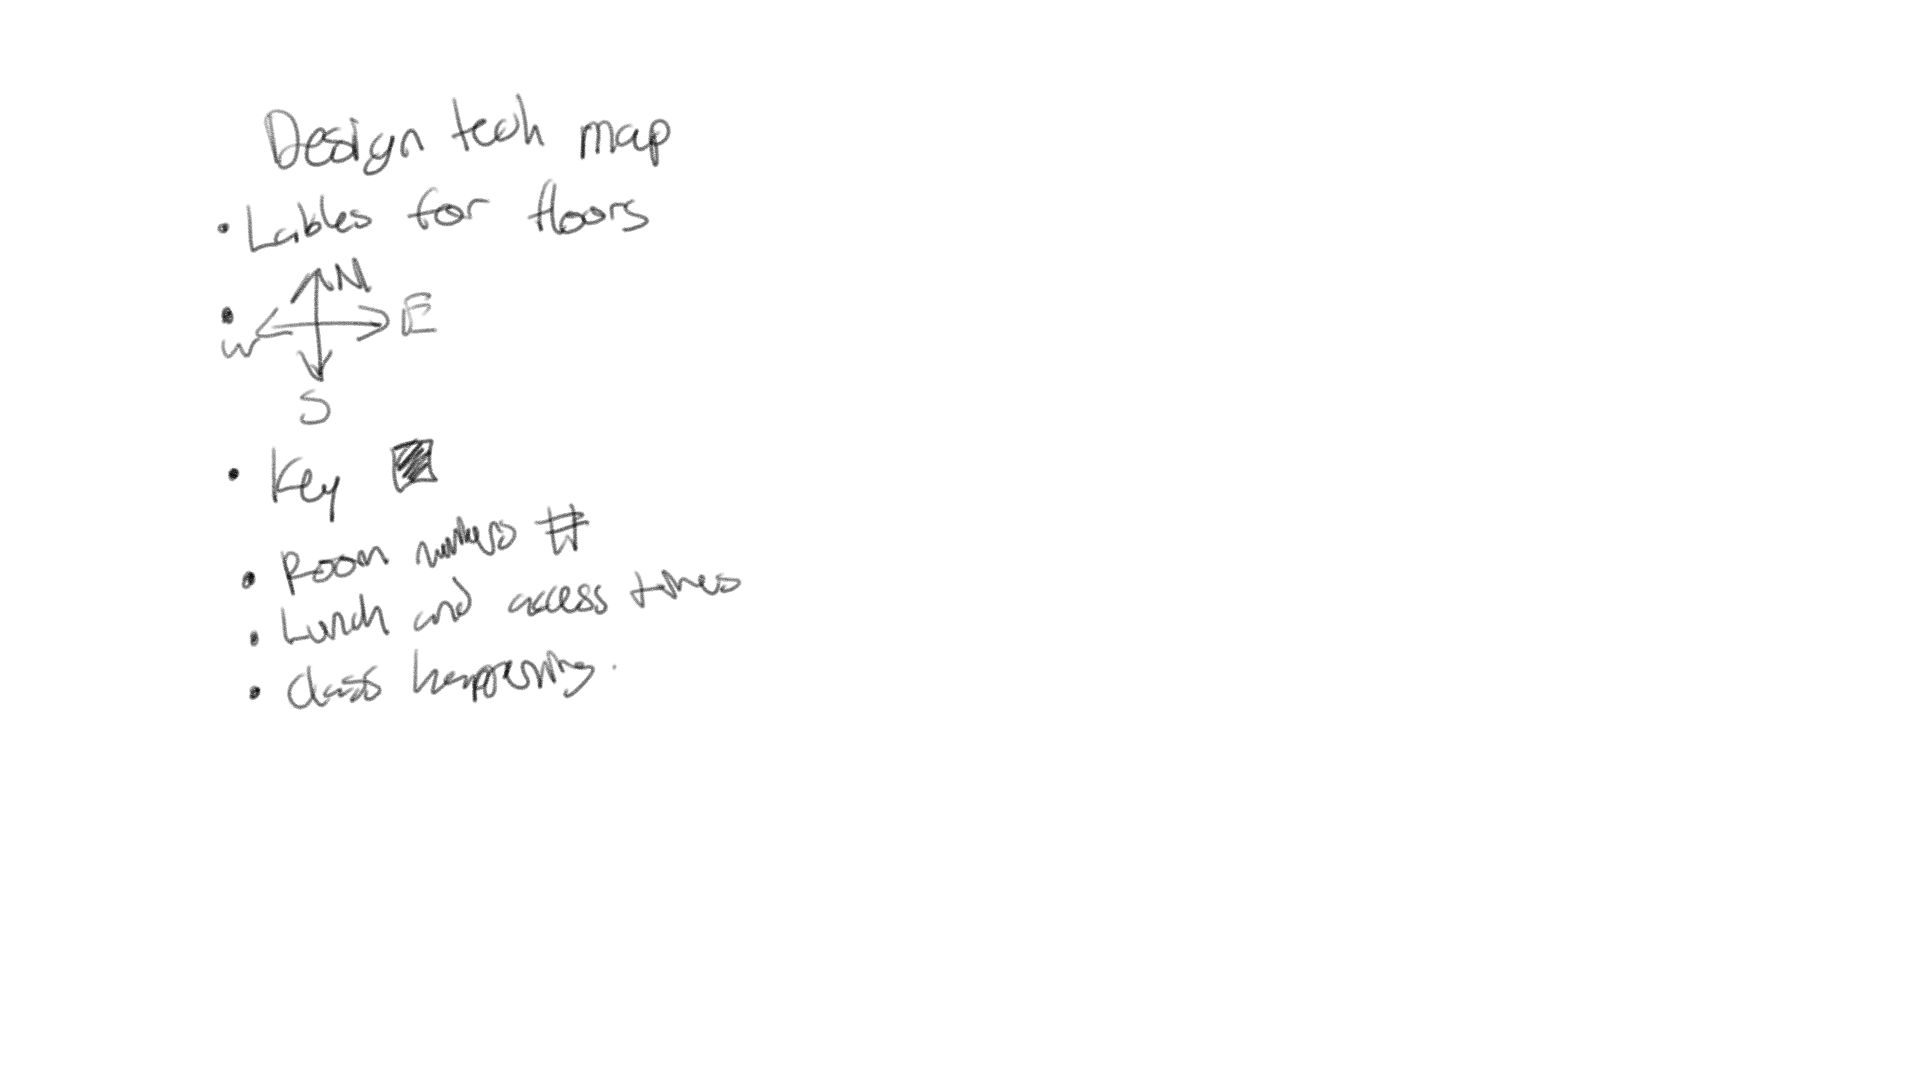 Design tech map
• Lables for floors
N
• W E
S
• Key
• Room numbers #
• Lunch and access times
• class happening.